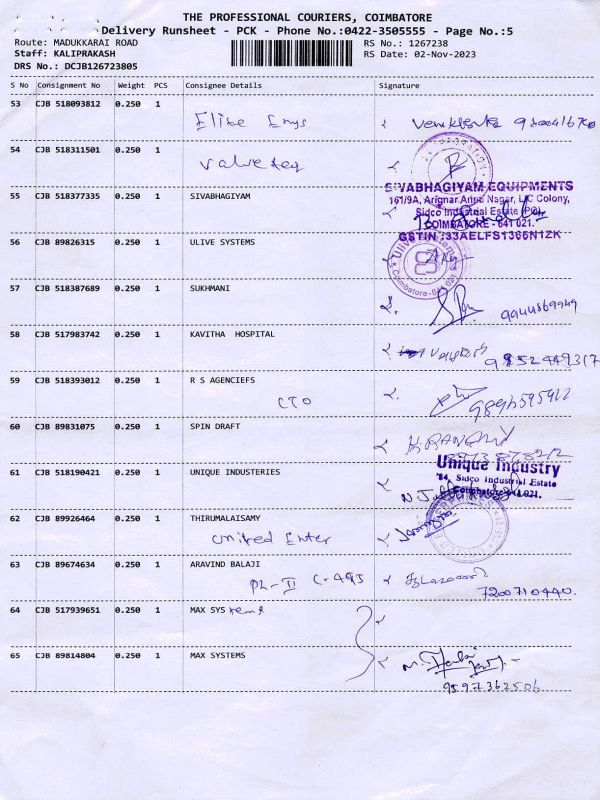 THE PROFESSIONAL COURIERS, COIMBATORE
Delivery Runsheet - PCK - Phone No.:0422-3505555 - Page No.:5
Route: MADUKKARAI ROAD RS No.: 1267238
Staff: KALIPRAKASH RS Date: 02-Nov-2023
DRS No.: DCJB126723805
S No Consignment No Weight PCS Consignee Details Signature
53 CJB 518093812 0.250 1
Elite Engs
54 CJB 518311501 0.250 1
Valve teq
55 CJB 518377335 0.250 1 SIVABHAGIYAM
SIVABHAGIYAM EQUIPMENTS
161/9A, Arignar Anna Nagar, L.I.C Colony,
Sidco Industrial Estate (PO)
COIMBATORE - 641 021.
GSTIN :33AELFS1366N1ZK
56 CJB 89826315 0.250 1 ULIVE SYSTEMS
Ulive Systems
Coimbatore-641 021
57 CJB 518387689 0.250 1 SUKHMANI
9944569949
58 CJB 517983742 0.250 1 KAVITHA HOSPITAL
59 CJB 518393012 0.250 1 R S AGENCIEFS
CTO
60 CJB 89831075 0.250 1 SPIN DRAFT
61 CJB 518190421 0.250 1 UNIQUE INDUSTERIES
Unique Industry
Sidco Industrial Estate
Coimbatore-641 021.
62 CJB 89926464 0.250 1 THIRUMALAISAMY
United Enter
63 CJB 89674634 0.250 1 ARAVIND BALAJI
PL-II C-495
7200710440.
64 CJB 517939651 0.250 1 MAX SYStems
65 CJB 89814804 0.250 1 MAX SYSTEMS
9597362506